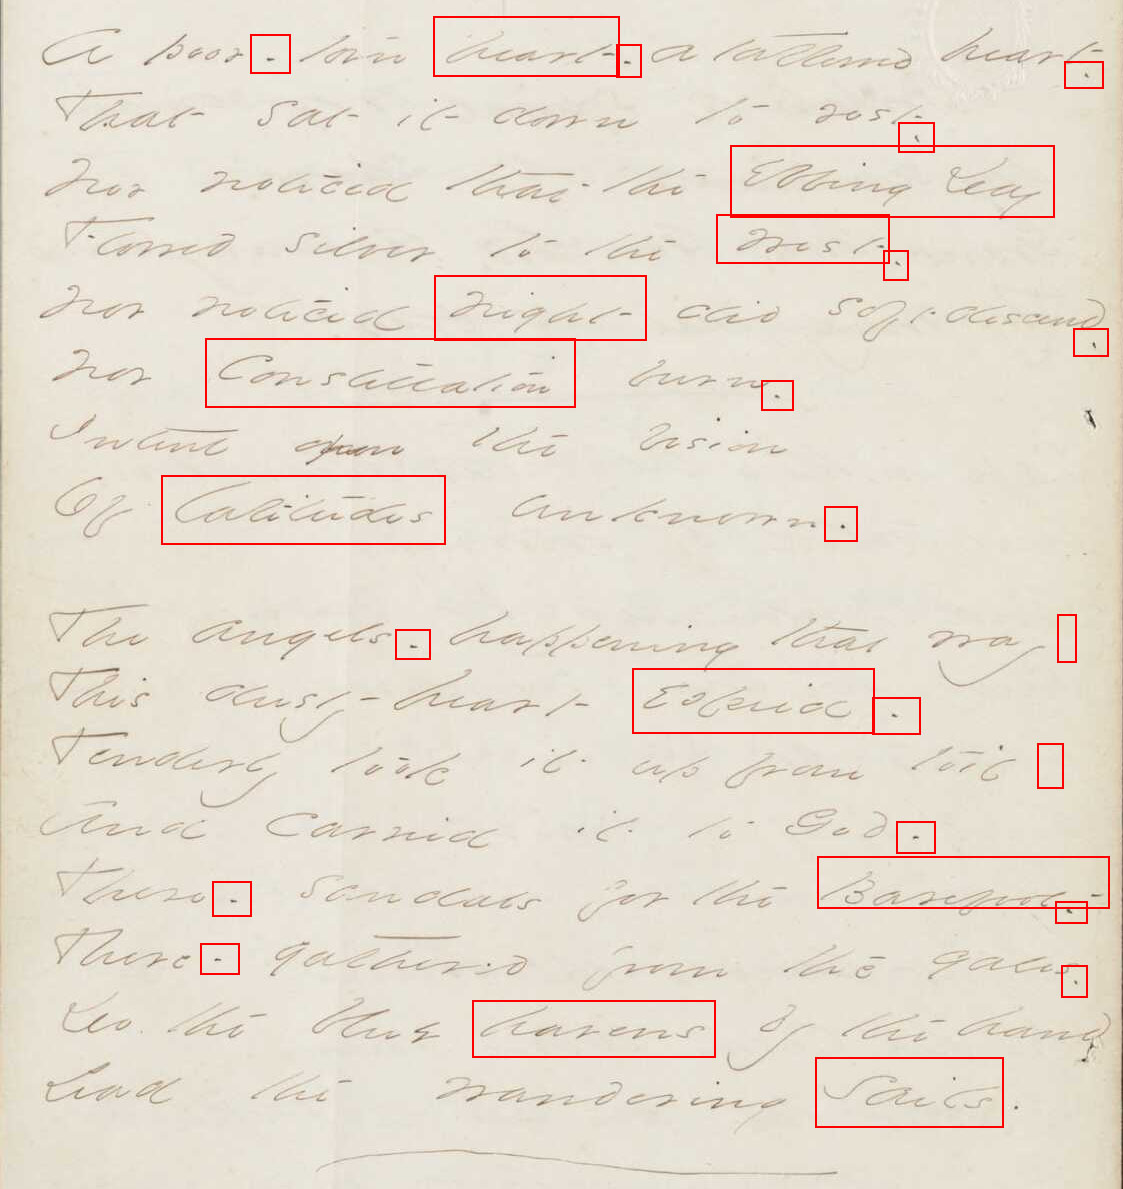 A poor - torn heart - a tattered heart -
That sat it down to rest -
Nor noticed that the Ebbing Day
Flowed silver to the west -
Nor noticed night did soft descend -
Nor Constellation burn -
Intent upon the vision
Of latitudes unknown.
The angels - happening that way
This dusty heart Espied -
Tenderly took it up from toil
And carried it to God -
There - sandals for the Barefoot -
There - gathered from the gales -
Do the blue havens by the hand
Lead the wandering Sails.